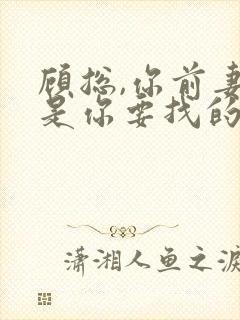 顾总,你前妻
是你要找的
潇湘人鱼之泪